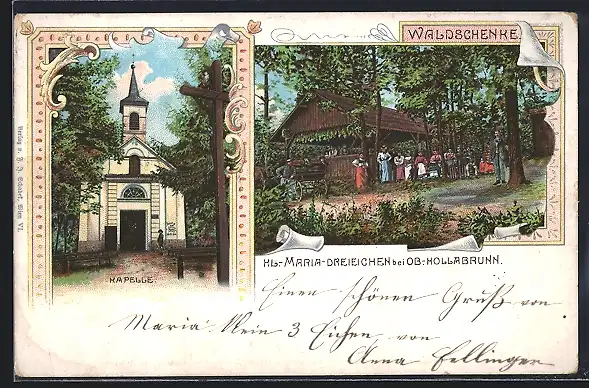 WALDSCHENKE.
KAPELLE.
KL.-MARIA-DREIEICHEN bei OB.-HOLLABRUNN.
Einen schönen Gruß von
Maria Klein 3 Eichen von
Anna Fellinger
Verlag v. F. J. Schubert, Wien VI.